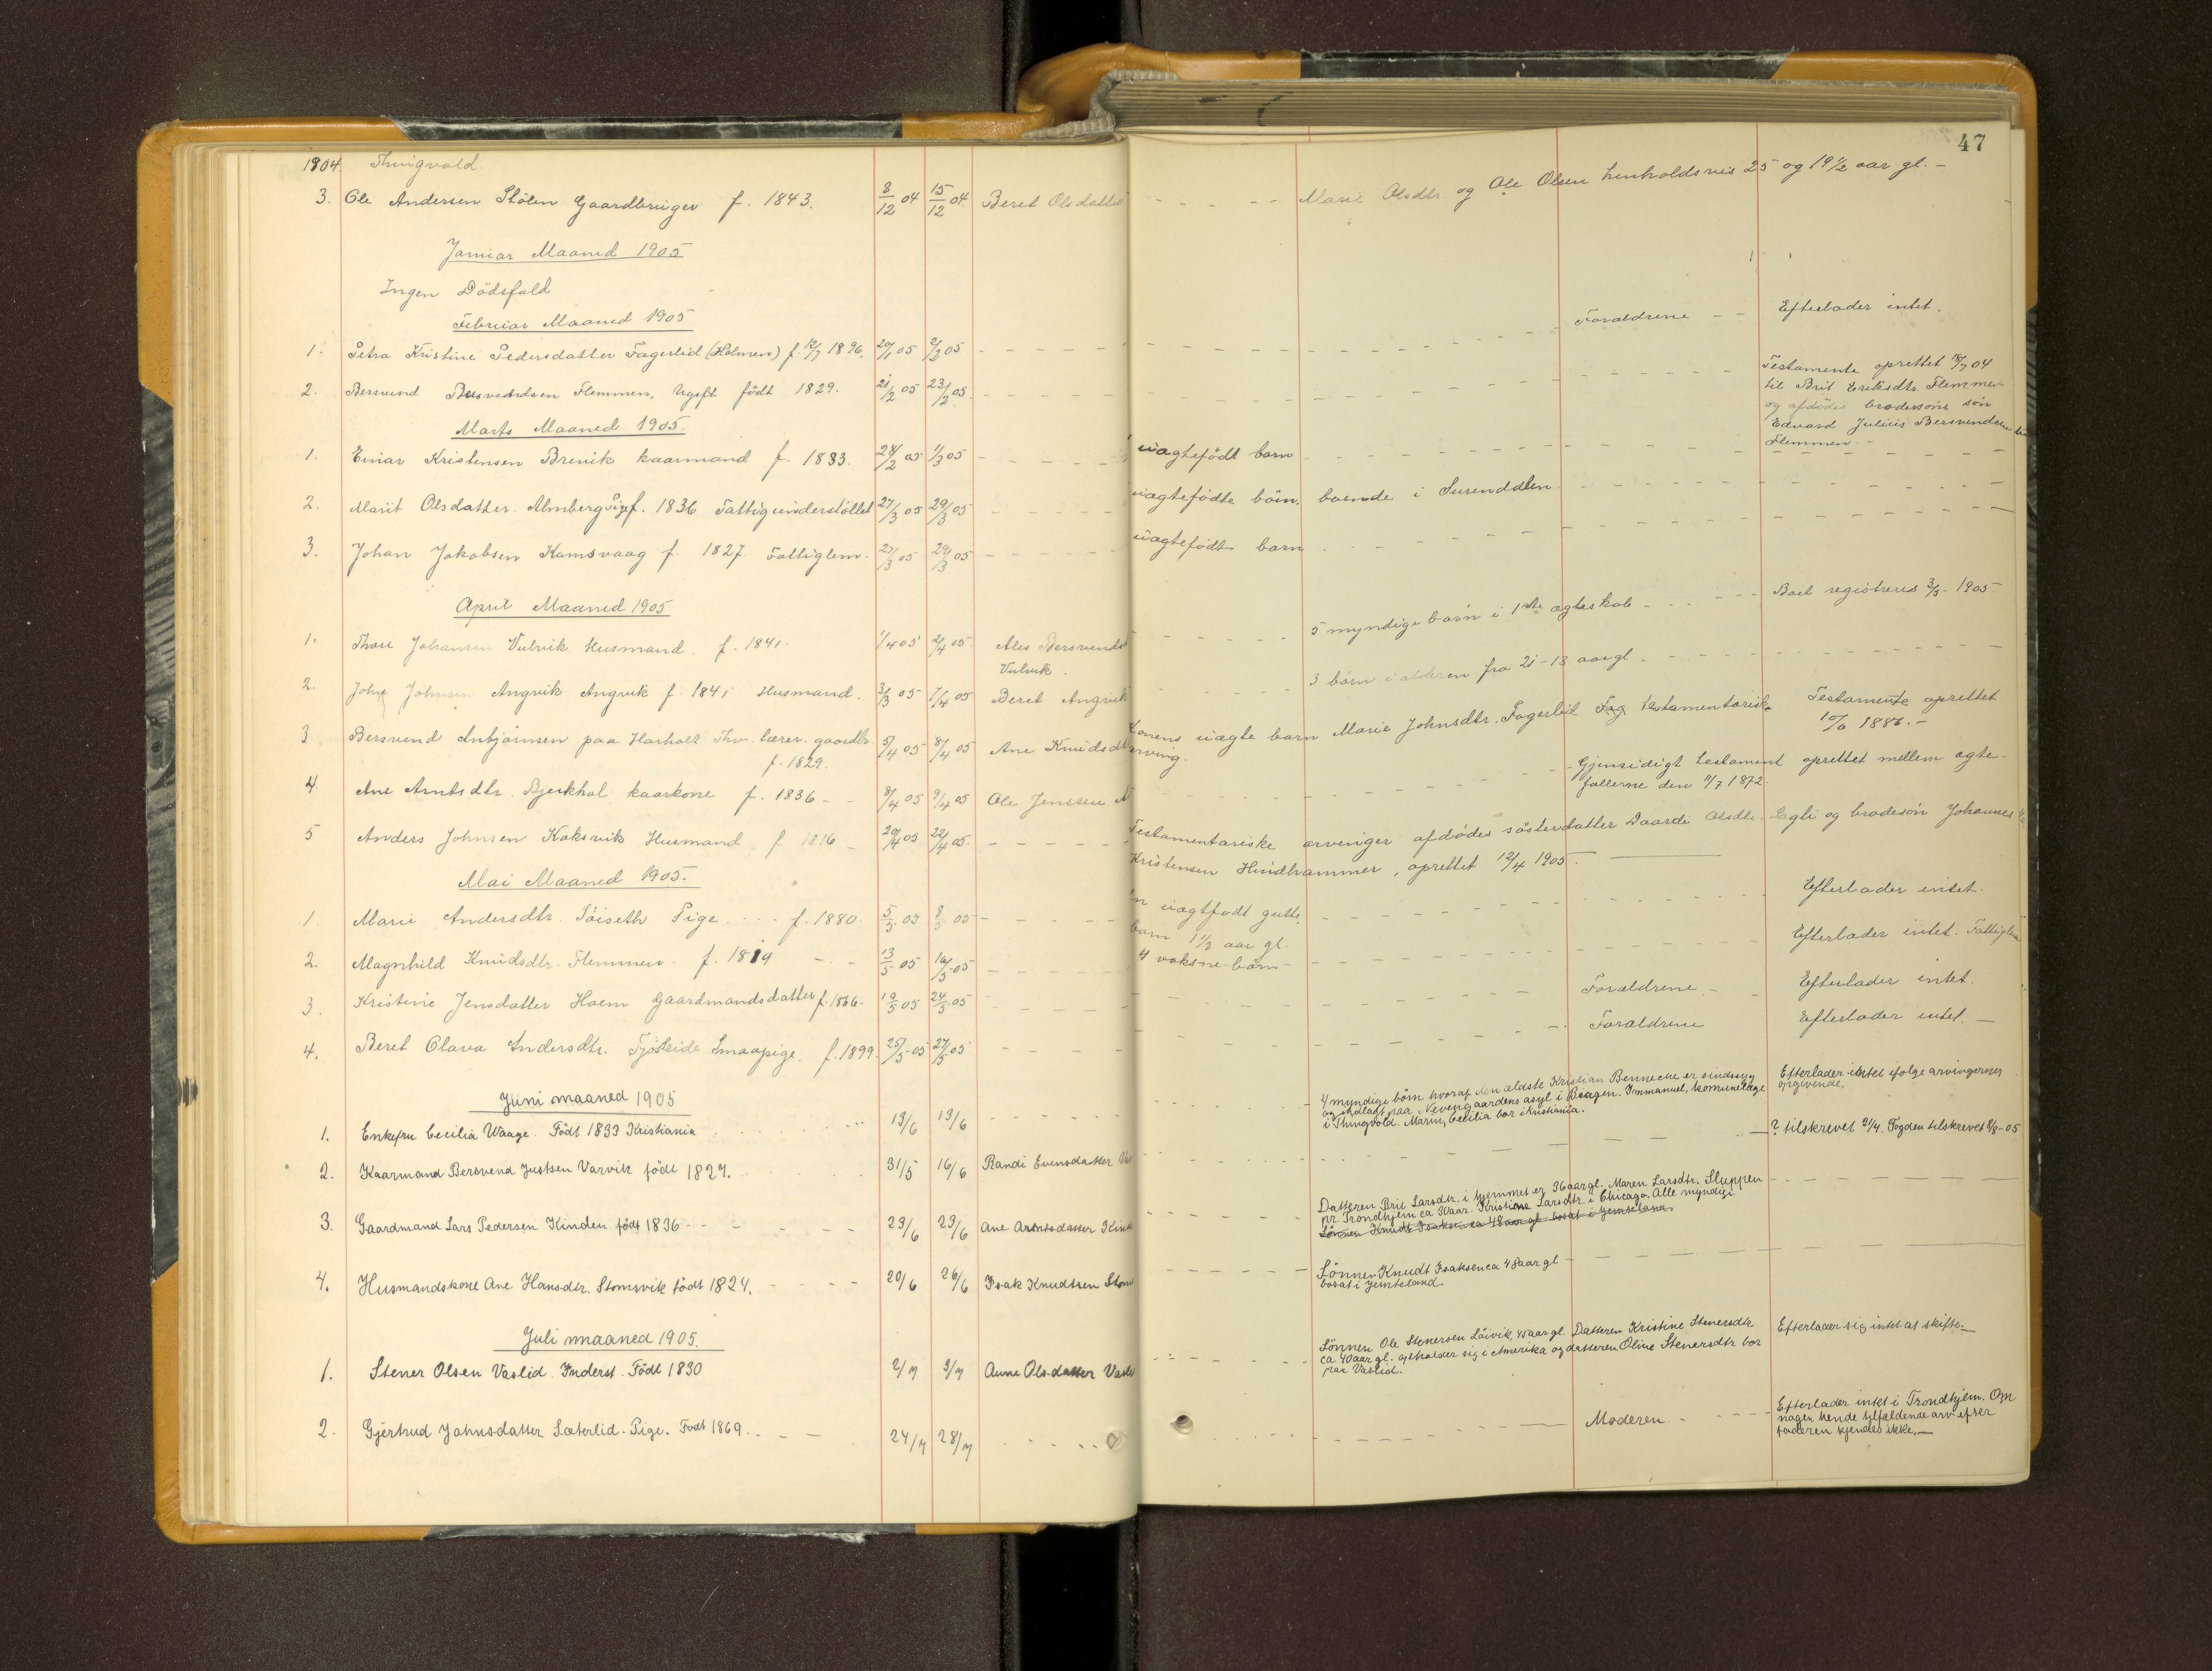 47
1904. Thingvold.
3. Ole Andersen Stölen Gaardbruger f. 1843. 8/12 04 15/12 04. Beret Olsdatter Marie Olsdtr. og Ole Olsen henholdsvis 25 og 19 1/2 aar gl. -
Januar Maaned 1905
Ingen Dödsfald
Februar Maaned 1905
1. Petra Kristine Pedersdatter Fagerlid (Holmen) f. 12/7 1896. 20/1 05 2/2 05 Foraldrene Efterlader intet.
2. Bersvend Bersvendsen Flemmen, Ugift födt 1829. 21/2 05 23/2 05. Testamente oprettet 18/7 04
til Brit Eriksdtr. Flemmen
og afdödes brodersöns sön
Edvard Julius Bersvendsen
Flemmen. -
Marts Maaned 1905.
1. Einar Kristensen Brevik kaarmand f. 1833. 28/2 05 1/3 05 uægtefödt barn
2. Marit Olsdatter Almberg Pige f. 1836 Fattigunderstöttet 27/3 05 29/3 05 uægtefödte börn. boende i Surenddlen
3. Johan Jakobsen Kamsvaag f. 1827. Fattiglem. 27/3 05 29/3 05 uægtefödt barn
April Maaned 1905
1. Thore Johansen Vulvik Husmand. f. 1841. 1/4 05 2/4 05. Ales Bersvends 5 myndige börn i 1ste ægteskab Boet registreret 3/5 - 1905.
Vulvik.
2. John Johnsen Angvik Angvik f. 1841 Husmand. 31/3 05 1/4 05 Beret Angvik 3 börn i alderen fra 21-13 aar gl.
3 Bersvend Anbjörnsen paa Harhalt Thv. lærer. gaardbr. 5/4 05 8/4 05 Ane Knudsdtr Konens uægte barn Marie Johnsdtr. Fagerlid testamentarisk Testamente oprettet
f. 1829. arving. 10/6 1886. -
4. Ane Arntsdtr. Bjerkhol kaarkone f. 1836 - - 8/4 05 9/4 05 Ole Jenssen Gjensidigt testament oprettet mellem ægte-
fællerne den 11/7 1872.
5 Anders Johnsen Koksvik Husmand f 1816 - 20/4 05 22/4 05. Testamentariske arvinger afdödes sösterdatter Daardi Olsdtr. Sagli og brodesön Johannes
Kristensen Hindhammer, oprettet 12/4 1905.
Mai Maaned 1905.
1. Marie Andersdtr. Töiseth Pige f. 1880. 5/5 05 8/5 05 - En uægtfödt gutte Efterlader intet.
barn 1 1/2 aar gl.
2. Magnhild Knudsdtr. Flemmen. f. 1819 - - 13/5 05 16/5 05 4 voksne börn - Efterlader intet. Fattiglem
3. Kristine Jensdatter Hoem Gaardmandsdatter f. 1866. 19/5 05 24/5 05 Forældrene - Efterlader intet.
4. Beret Olava Andersdtr. Tjösteide Smaapige. f. 1899. 25/5 05 27/5 05 Foraldrene Efterlader intet. -
Juni maaned 1905
1. Enkefru Cecilia Waage. Födt 1833 Kristiania 13/6 13/6 4 myndige börn hvoraf den ældste Kristian Bennecke er sindssyg Efterlader intet ifölge arvingernes
og indlagt paa Nevengaardens asyl i Bergen. Immanuel, komunelæge opgivende.
i Thingvold. Marin, Cecilia bor i Kristiania.
2. Kaarmand Bersvend Justsen Varvik födt 1827. 31/5 16/6 Randi Evensdatter ? tilskrevet 2/7. Fogden tilskrevet 8/8 - 05
3. Gaardmand Lars Pedersen Kinden födt 1836 - - 23/6 23/6 Ane Arntsdatter Datteren Brit Larsdtr. i hjemmet er 36 aar gl. Maren Larsdtr. Sluppen
pr. Trondhjem ca 30 aar. Kristiane Larsdtr. i Chicago. Alle myndige
Sönnen Knudt Isaksen ca 48 aar gl bosat i Jemteland.
4. Husmandskone Ane Hansdtr. Stomsvik födt 1824. 20/6 26/6 Isak Knudtsen Sönnen Knudt Isaksen ca 48 aar gl
bosat i Jemteland.
Juli maaned 1905.
1. Stener Olsen Vaslid. Inderst. Födt 1830 2/7 3/7 Anne Olsdatter Sönnen Ole Stenersen Löivik, 45 aar gl. Datteren Kristine Stenersdtr. Efterlader sig intet at skifte. -
ca 40 aar gl. opholder sig i Amerika og datteren Oline Stenersdtr bor
paa Vaslid.
2. Gjertrud Johnsdatter Sæterlid. Pige. Födt 1869. 24/7 28/7 Moderen. Efterlader intet i Trondhjem. Om
nogen hende tilfaldende arv efter
faderen kjendes ikke. -